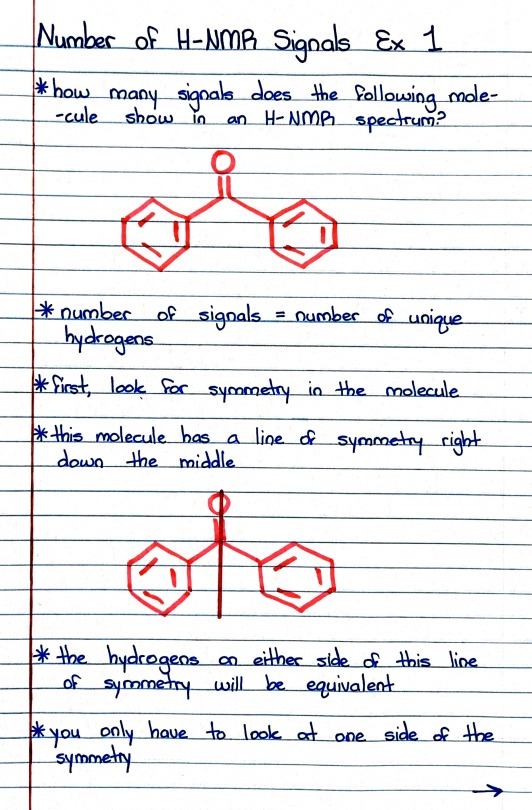 Number of H-NMR Signals Ex 1
* how many signals does the following mole-
-cule show in an H-NMR spectrum?
O
* number of signals = number of unique
hydrogens
* first, look for symmetry in the molecule
* this molecule has a line of symmetry right
down the middle
O
* the hydrogens on either side of this line
of symmetry will be equivalent
* you only have to look at one side of the
symmetry
→